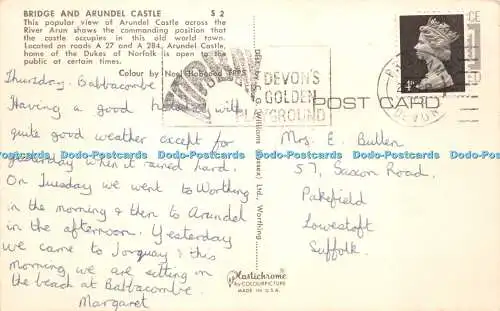 BRIDGE AND ARUNDEL CASTLE S 2
This popular view of Arundel Castle across the
River Arun shows the commanding position that
the castle occupies in this old world town.
Located on roads A 27 and A 284, Arundel Castle,
home of the Dukes of Norfolk is open to the
public at certain times.
Colour by Noel Habgood FRPS
Thursday. Babbacombe
Having a good holiday with
quite good weather except for
yesterday when it rained hard.
On Tuesday we went to Worthing
in the morning & then to Arundel
in the afternoon. Yesterday
we came to Torquay & this
morning we are sitting on
the beach at Babbacombe.
Margaret
Williams (Sussex) Ltd., Worthing
Plastichrome
COLOURPICTURE
MADE IN U.S.A.
TORBAY
DEVON'S
GOLDEN
PLAYGROUND
DEVON
4D
POST CARD
Mrs. E. Bullen
57, Saxon Road.
Pakefield
Lowestoft
Suffolk.
Dodo-Postcards Dodo-Postcards Dodo-Postcards Dodo-Postcards